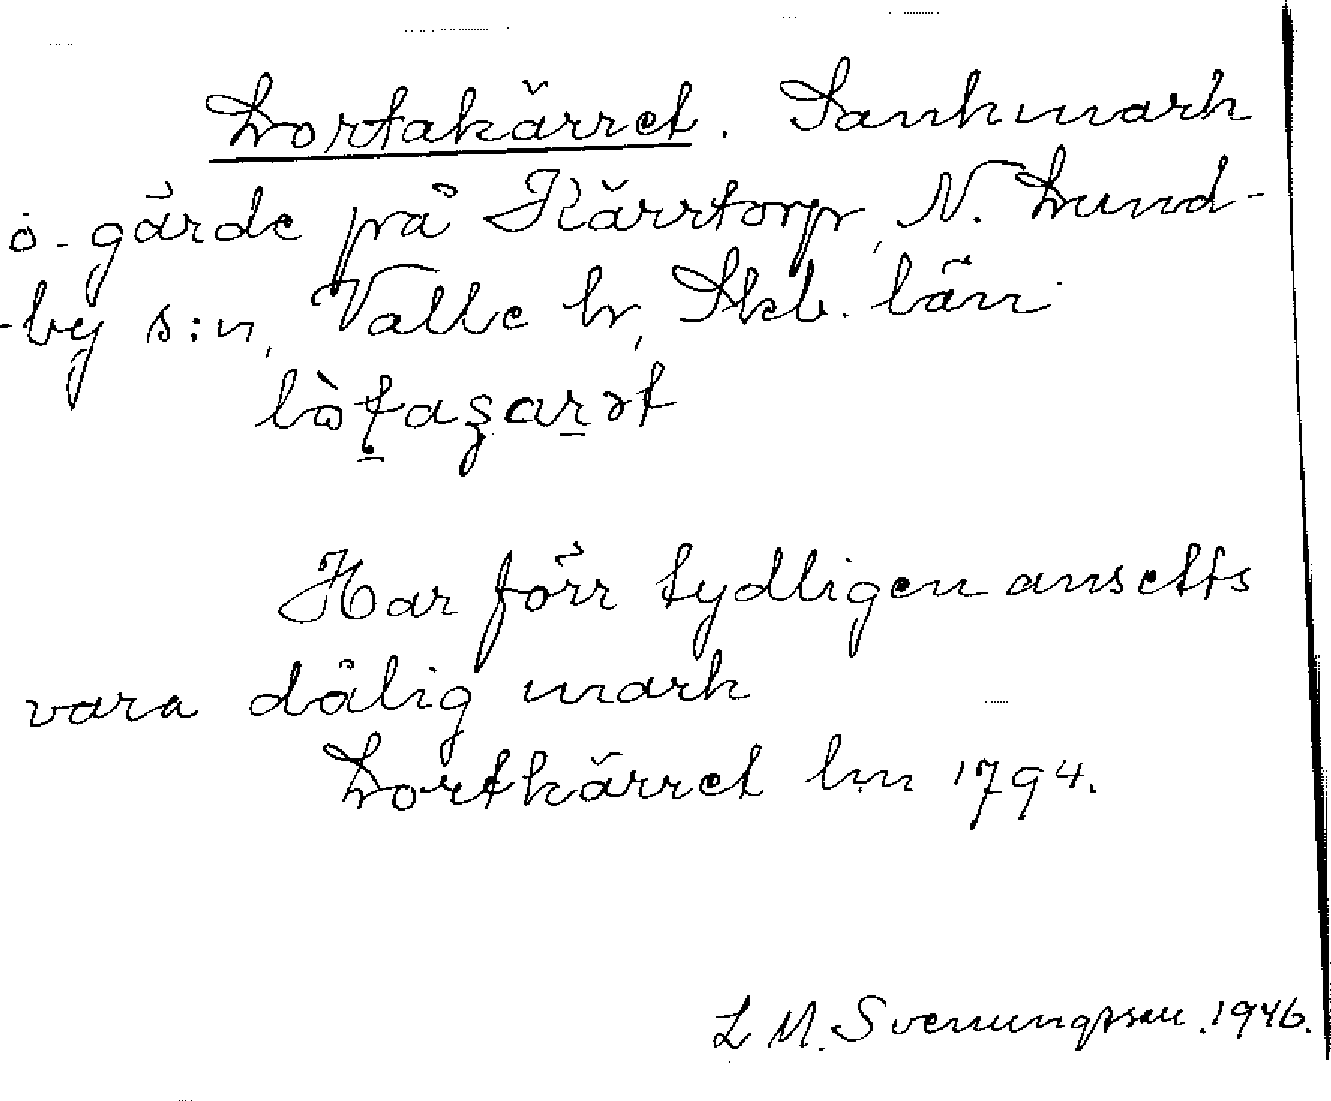 Lortakärret. Sankmark
o. gärde på Kärrtorp, N. Lund-
-by s:n, Valle hd, Skb. län
Har förr tydligen ansetts
vara dålig mark
Lortkärret lm 1794.
L M. Svenungsson. 1946.